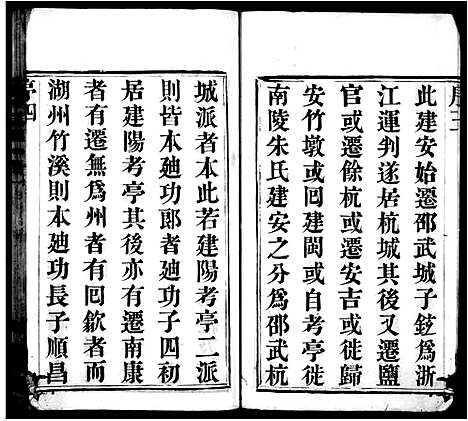 此建安始遷邵武城子鉉爲浙
江運判遂居杭城其後又遷鹽
官或遷餘杭或遷安吉或徙歸
安竹墩或囘建閩或自考亭徙
南陵朱氏建安之分爲邵武杭
序四
城派者本此若建陽考亭二派
則皆本廸功郎者廸功子四初
居建陽考亭其後亦有遷南康
者有遷無爲州者有囘歙者而
湖州竹溪則本廸功長子順昌